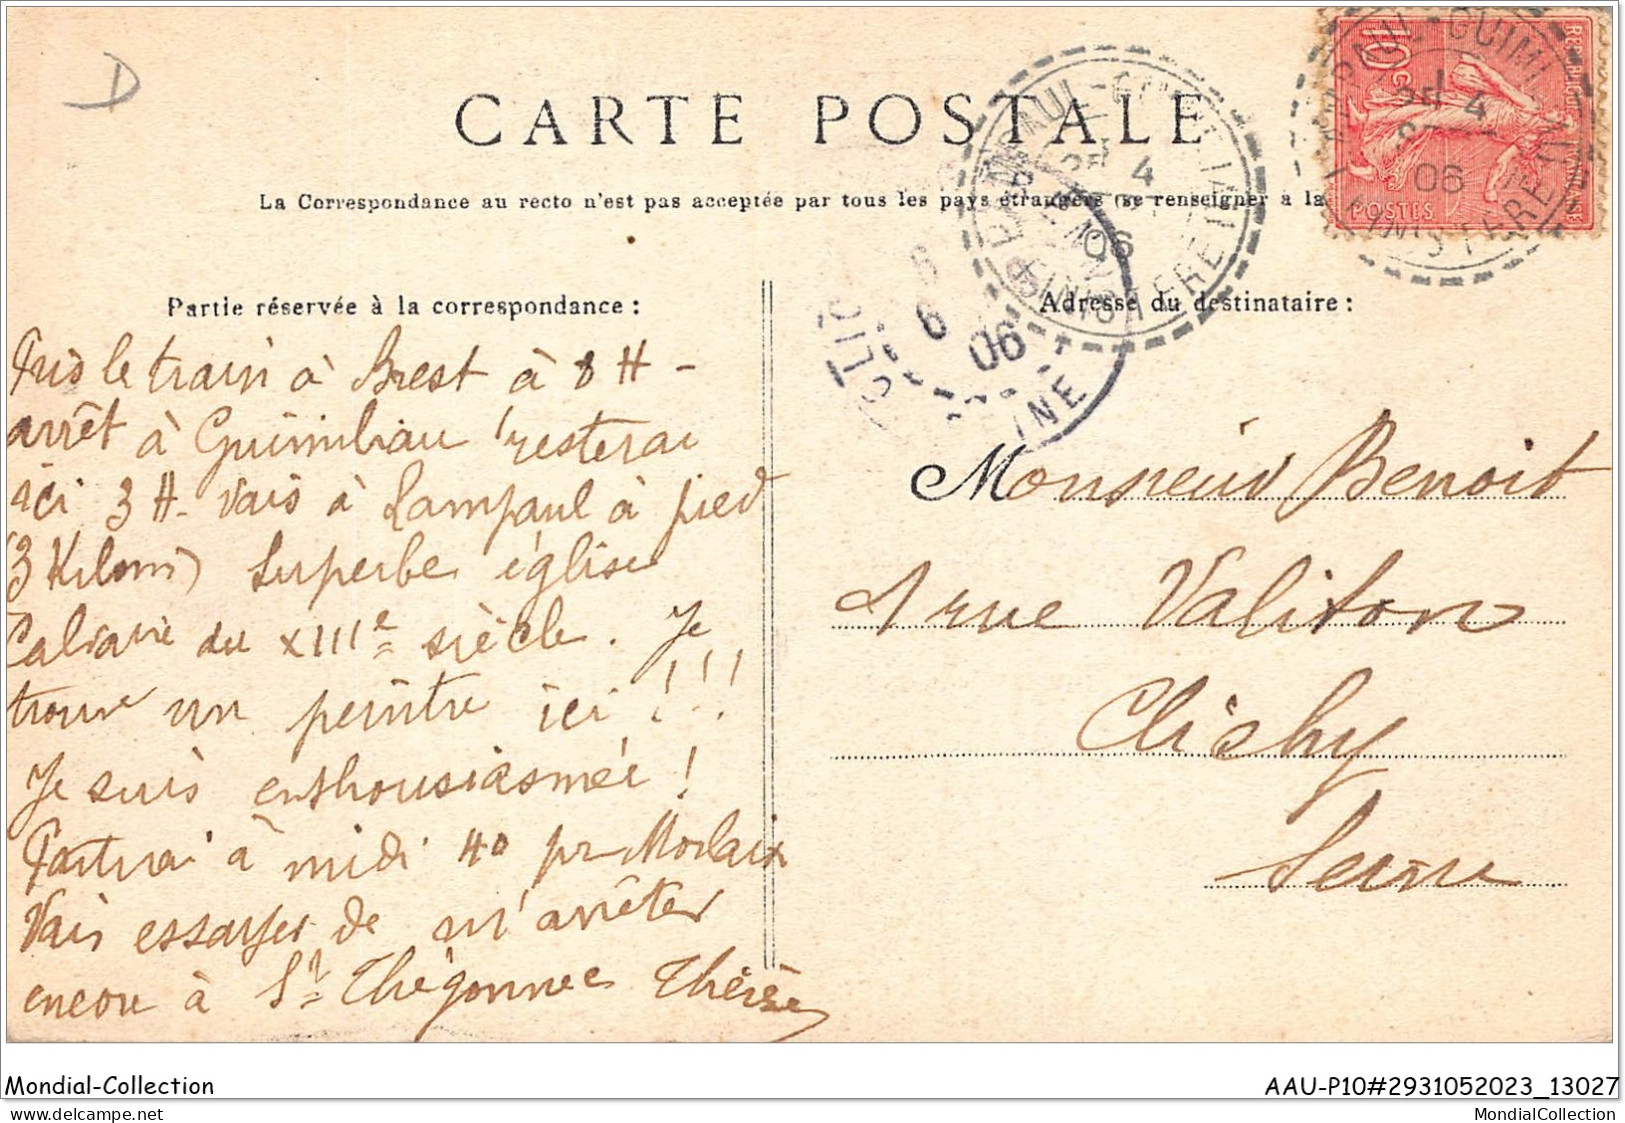 D
CARTE POSTALE
La Correspondance au recto n'est pas acceptée par tous les pays étrangers (se renseigner a la
Partie réservée à la correspondance :
Adresse du destinataire :
Pris le train à Brest à 8 H -
arrêt à Guimiliau resterai
ici 3 H - Vais à Lampaul à pied
(3 Kilom) Superbe église
Calvaire du XIIIe siècle. Je
trouve un peintre ici !!!
Je suis enthousiasmée !
Partirai à midi 40 pr Morlaix
Vais essayer de m'arrêter
encore à St Thégonnec Thérèse
Monsieur Benoit
1 rue Valiton
Clichy
Seine
10 C
POSTES
LAMPAUL-GUIMI
FINISTERE
4
06
4
06
FINISTERE
6
06
Mondial-Collection
AAU-P10#2931052023_13027
MondialCollection